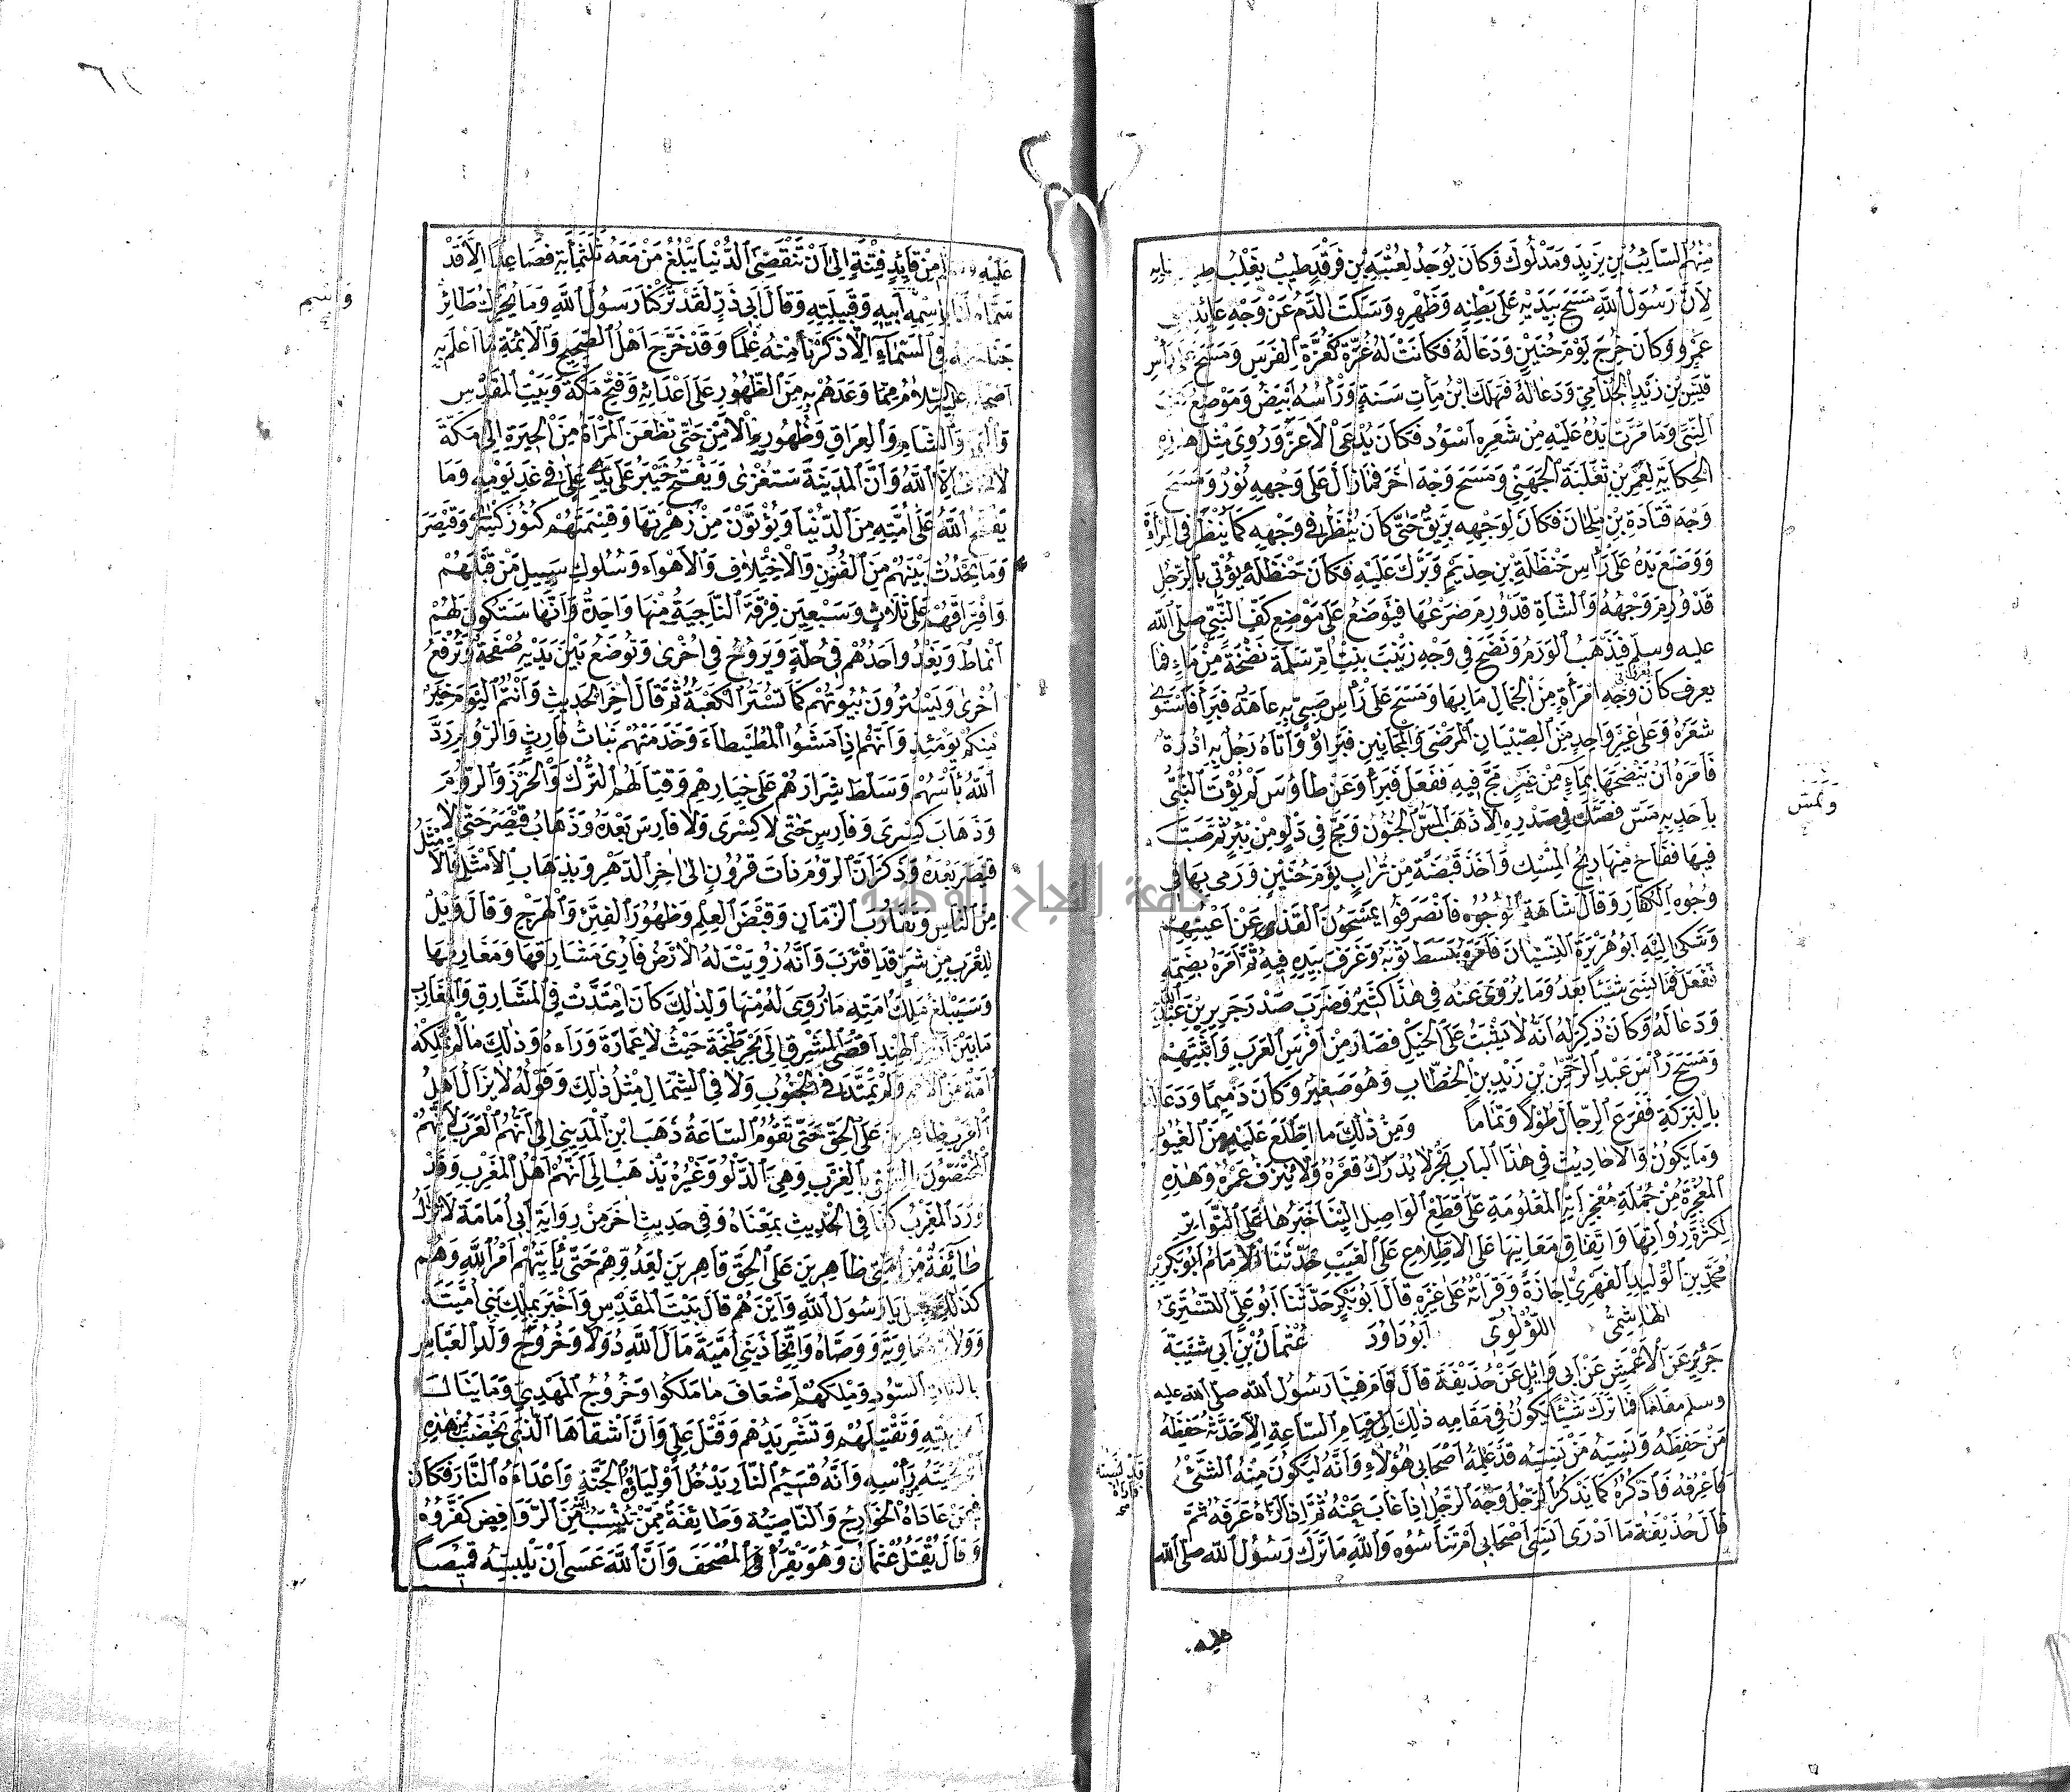 مِنْهُمُ السَّائِبُ بْنُ يَزِيدَ وَمَدْلُوكٌ وَكَانَ يُوجَدُ لِعُتْبَةَ بْنِ فَرْقَدٍ طِيبٌ يَغْلِبُ
لِأَنَّ رَسُولَ اللهِ مَسَحَ بِيَدَيْهِ عَلَى بَطْنِهِ وَظَهْرِهِ وَسَلَتَ الدَّمَ عَنْ وَجْهِ عَائِذِ بْنِ
عَمْرٍو وَكَانَ جُرِحَ يَوْمَ حُنَيْنٍ وَدَعَا لَهُ فَكَانَتْ لَهُ غُرَّةٌ كَغُرَّةِ الْفَرَسِ وَمَسَحَ عَلَى رَأْسِ
قَيْسِ بْنِ زَيْدٍ الْجُذَامِيِّ وَدَعَا لَهُ فَهَلَكَ ابْنُ مِائَةِ سَنَةٍ وَرَأْسُهُ أَبْيَضُ وَمَوْضِعُ كَفِّ
النَّبِيِّ وَمَا مَرَّتْ يَدُهُ عَلَيْهِ مِنْ شَعَرِهِ أَسْوَدُ فَكَانَ يُدْعَى الْأَغَرَّ وَرُوِيَ مِثْلُ هَذِهِ
الْحِكَايَةِ لِعَمْرِو بْنِ ثَعْلَبَةَ الْجُهَنِيِّ وَمَسَحَ وَجْهَ آخَرَ فَمَا زَالَ عَلَى وَجْهِهِ نُورٌ وَمَسَحَ
وَجْهَ قَتَادَةَ بْنِ مِلْحَانَ فَكَانَ لِوَجْهِهِ بَرِيقٌ حَتَّى كَانَ يُنْظَرُ فِي وَجْهِهِ كَمَا يُنْظَرُ فِي الْمِرْآةِ
وَوَضَعَ يَدَهُ عَلَى رَأْسِ حَنْظَلَةَ بْنِ حِذْيَمٍ وَبَرَّكَ عَلَيْهِ فَكَانَ حَنْظَلَةُ يُؤْتَى بِالرَّجُلِ
قَدْ وَرِمَ وَجْهُهُ وَالشَّاةِ قَدْ وَرِمَ ضَرْعُهَا فَيُوضَعُ عَلَى مَوْضِعِ كَفِّ النَّبِيِّ صلى الله
عليه وسلم فَيَذْهَبُ الْوَرَمُ وَنَضَحَ فِي وَجْهِ زَيْنَبَ بِنْتِ أُمِّ سَلَمَةَ نَضْحَةً مِنْ مَاءٍ فَمَا
يعرف كَانَ وَجْهِ امْرَأَةٍ مِنَ الْجَمَالِ مَا بِهَا وَمَسَحَ عَلَى رَأْسِ صَبِيٍّ بِهِ عَاهَةٌ فَبَرَأَ فَاسْتَوَى
شَعَرُهُ وَعَلَى غَيْرِ وَاحِدٍ مِنَ الصِّبْيَانِ الْمَرْضَى وَالْمَجَانِينِ فَبَرَأُوا وَأَتَاهُ رَجُلٌ بِهِ أُدْرَةٌ
فَأَمَرَهُ أَنْ يَنْضَحَهَا بِمَاءٍ مِنْ عَيْنٍ مَجَّ فِيهِ فَفَعَلَ فَبَرَأَ وَعَنْ طَاوُسٍ لَمْ يُؤْتَ النَّبِيُّ
بِأَحَدٍ بِهِ مَسٌّ فَصَكَّ فِي صَدْرِهِ إِلَّا ذَهَبَ الْمَسُّ الْجُنُونُ وَمَجَّ فِي دَلْوٍ مِنْ بِئْرٍ ثُمَّ صَبَّ
فِيهَا فَفَاحَ مِنْهَا رِيحُ الْمِسْكِ وَأَخَذَ قَبْضَةً مِنْ تُرَابٍ يَوْمَ حُنَيْنٍ وَرَمَى بِهَا فِي
وُجُوهِ الْكُفَّارِ وَقَالَ شَاهَتِ الْوُجُوهُ فَانْصَرَفُوا يَمْسَحُونَ الْقَذَى عَنْ أَعْيُنِهِمْ
وَشَكَى إِلَيْهِ أَبُو هُرَيْرَةَ النِّسْيَانَ فَأَمَرَهُ بِبَسْطِ ثَوْبِهِ وَغَرَفَ بِيَدِهِ فِيهِ ثُمَّ أَمَرَهُ بِضَمِّهِ
فَفَعَلَ فَمَا نَسِيَ شَيْئًا بَعْدُ وَمَا يُرْوَى عَنْهُ فِي هَذَا كَثِيرٌ وَضَرَبَ صَدْرَ جَرِيرِ بْنِ عَبْدِ اللهِ
وَدَعَا لَهُ وَكَانَ ذُكِرَ لَهُ أَنَّهُ لَا يَثْبُتُ عَلَى الْخَيْلِ فَصَارَ مِنْ أَفْرَسِ الْعَرَبِ وَأَثْبَتِهِمْ
وَمَسَحَ رَأْسَ عَبْدِ الرَّحْمٰنِ بْنِ زَيْدِ بْنِ الْخَطَّابِ وَهُوَ صَغِيرٌ وَكَانَ دَمِيمًا وَدَعَا لَهُ
بِالْبَرَكَةِ فَفَرَعَ الرِّجَالَ طُولًا وَتَمَامًا وَمِنْ ذٰلِكَ مَا اطَّلَعَ عَلَيْهِ مِنَ الْغُيُوبِ
وَمَا يَكُونُ وَالْأَحَادِيثُ فِي هٰذَا الْبَابِ بَحْرٌ لَا يُدْرَكُ قَعْرُهُ وَلَا يُنْزَفُ غَمْرُهُ وَهٰذِهِ
الْمُعْجِزَةُ مِنْ جُمْلَةِ مُعْجِزَاتِهِ الْمَعْلُومَةِ عَلَى قَطْعٍ الْوَاصِلِ إِلَيْنَا خَبَرُهَا عَلَى التَّوَاتُرِ
لِكَثْرَةِ رُوَاتِهَا وَاتِّفَاقِ مَعَانِيهَا عَلَى الْاطِّلَاعِ عَلَى الْغَيْبِ حَدَّثَنَا الْإِمَامُ أَبُو بَكْرٍ
مُحَمَّدُ بْنُ الْوَلِيدِ الْفِهْرِيُّ إِجَازَةً وَقَرَأْتُهُ عَلَى غَيْرِهِ قَالَ أَبُو بَكْرٍ حَدَّثَنَا أَبُو عَلِيٍّ التُّسْتَرِيُّ
الْهَاشِمِيُّ اللُّؤْلُؤِيُّ أَبُو دَاوُدَ عُثْمَانُ بْنُ أَبِي شَيْبَةَ
جَرِيرٌ عَنِ الْأَعْمَشِ عَنْ أَبِي وَائِلٍ عَنْ حُذَيْفَةَ قَالَ قَامَ فِينَا رَسُولُ اللهِ صلى الله عليه
وسلم مَقَامًا فَمَا تَرَكَ شَيْئًا يَكُونُ فِي مَقَامِهِ ذٰلِكَ إِلَى قِيَامِ السَّاعَةِ إِلَّا حَدَّثَهُ حَفِظَهُ
مَنْ حَفِظَهُ وَنَسِيَهُ مَنْ نَسِيَهُ قَدْ عَلِمَهُ أَصْحَابِي هٰؤُلَاءِ وَأَنَّهُ لَيَكُونُ مِنْهُ الشَّيْءُ
فَأَعْرِفُهُ فَأَذْكُرُهُ كَمَا يَذْكُرُ الرَّجُلُ وَجْهَ الرَّجُلِ إِذَا غَابَ عَنْهُ ثُمَّ إِذَا رَآهُ عَرَفَهُ ثُمَّ
قَالَ حُذَيْفَةُ مَا أَدْرِي أَنَسِيَ أَصْحَابِي أَمْ تَنَاسَوْهُ وَاللهِ مَا تَرَكَ رَسُولُ اللهِ صلى الله
عليه
عَلَيْهِ وسلم مِنْ قَائِدِ فِتْنَةٍ إِلَى أَنْ تَنْقَضِيَ الدُّنْيَا يَبْلُغُ مَنْ مَعَهُ ثَلَثَمِائَةٍ فَصَاعِدًا إِلَّا قَدْ
سَمَّاهُ لَنَا بِاسْمِهِ أَبِيهِ وَقَبِيلَتِهِ وَقَالَ أَبِي ذَرٍّ لَقَدْ تَرَكَنَا رَسُولُ اللهِ وَمَا يُحَرِّكُ طَائِرٌ
جَنَاحَيْهِ فِي السَّمَاءِ إِلَّا ذَكَّرَنَا مِنْهُ عِلْمًا وَقَدْ خَرَّجَ أَهْلُ الصَّحِيحِ وَالْأَئِمَّةُ مَا أَعْلَمَ بِهِ
أَصْحَابَهُ عليه السلام مِمَّا وَعَدَهُمْ بِهِ مِنَ الظُّهُورِ عَلَى أَعْدَائِهِ وَفَتْحِ مَكَّةَ وَبَيْتِ الْمَقْدِسِ
وَالْيَمَنِ وَالشَّامِ وَالْعِرَاقِ وَظُهُورِ الْأَمْنِ حَتَّى تَظْعَنَ الْمَرْأَةُ مِنَ الْحِيرَةِ إِلَى مَكَّةَ
لَا تَخَافُ إِلَّا اللهَ وَأَنَّ الْمَدِينَةَ سَتُغْزَى وَيَفْتَحُ خَيْبَرَ عَلَى يَدَيْ عَلِيٍّ فِي غَدِ يَوْمِهِ وَمَا
يَفْتَحُ اللهُ عَلَى أُمَّتِهِ مِنَ الدُّنْيَا وَيُؤْتَوْنَ مِنْ زَهْرَتِهَا وَقِسْمَتِهِمْ كُنُوزَ كِسْرَى وَقَيْصَرَ
وَمَا يَحْدُثُ بَيْنَهُمْ مِنَ الْفُتُونِ وَالْاخْتِلَافِ وَالْأَهْوَاءِ وَسُلُوكِ سَبِيلِ مَنْ قَبْلَهُمْ
وَافْتِرَاقِهِمْ عَلَى ثَلَاثٍ وَسَبْعِينَ فِرْقَةً النَّاجِيَةُ مِنْهَا وَاحِدَةٌ وَأَنَّهَا سَتَكُونُ لَهُمْ
أَنْمَاطٌ وَيَغْدُو أَحَدُهُمْ فِي حُلَّةٍ وَيَرُوحُ فِي أُخْرَى وَتُوضَعُ بَيْنَ يَدَيْهِ صَفْحَةٌ وَتُرْفَعُ
أُخْرَى وَيَسْتُرُونَ بُيُوتَهُمْ كَمَا تُسْتَرُ الْكَعْبَةُ ثُمَّ قَالَ آخِرَ الْحَدِيثِ وَأَنْتُمُ الْيَوْمَ خَيْرٌ
مِنْكُمْ يَوْمَئِذٍ وَأَنَّهُمْ إِذَا مَشَوُا الْمُطَيْطَاءَ وَخَدَمَتْهُمْ بَنَاتُ فَارِسَ وَالرُّومِ رَدَّ
اللهُ بَأْسَهُمْ وَسَلَّطَ شِرَارَهُمْ عَلَى خِيَارِهِمْ وَقِتَالَهُمُ التُّرْكَ وَالْخَزَرَ وَالرُّومَ
وَذَهَابَ كِسْرَى وَفَارِسٍ حَتَّى لَا كِسْرَى وَلَا فَارِسَ بَعْدَهُ وَذَهَابُ قَيْصَرَ حَتَّى لَا
قَيْصَرَ بَعْدَهُ وَذَكَرَ أَنَّ الرُّومَ ذَاتَ قُرُونٍ إِلَى آخِرِ الدَّهْرِ وَبِذَهَابِ الْأَمْثَلِ فَالْأَمْثَلِ
مِنَ النَّاسِ وَتَقَارُبِ الزَّمَانِ وَقَبْضَ الْعِلْمِ وَظُهُورَ الْفِتَنِ وَالْهَرْجِ وَقَالَ وَيْلٌ
لِلْعَرَبِ مِنْ شَرٍّ قَدِ اقْتَرَبَ وَأَنَّهُ زُوِيَتْ لَهُ الْأَرْضُ فَأُرِيَ مَشَارِقَهَا وَمَغَارِبَهَا
وَسَيَبْلُغُ مُلْكُ أُمَّتِهِ مَا زُوِيَ لَهُ مِنْهَا وَلِذٰلِكَ كَانَ امْتَدَّتْ فِي الْمَشَارِقِ وَالْمَغَارِبِ
مَا بَيْنَ أَرْضِ الْهِنْدِ أَقْصَى الْمَشْرِقِ إِلَى بَحْرِ طَنْجَةَ حَيْثُ لَا عِمَارَةَ وَرَاءَهُ وَذٰلِكَ مَا لَمْ تَمْلِكْهُ
أُمَّةٌ مِنَ الْأُمَمِ وَلَمْ يَمْتَدَّ فِي الْجَنُوبِ وَلَا فِي الشَّمَالِ مِثْلُ ذٰلِكَ وَقَوْلُهُ لَا يَزَالُ أَهْلُ
الْغَرْبِ ظَاهِرِينَ عَلَى الْحَقِّ حَتَّى تَقُومَ السَّاعَةُ ذَهَبَ ابْنُ الْمَدِينِيِّ إِلَى أَنَّهُمُ الْعَرَبُ لِأَنَّهُمْ
الْمُخْتَصُّونَ بِالسَّقْيِ بِالْغَرْبِ وَهِيَ الدَّلْوُ وَغَيْرُهُ يَذْهَبُ إِلَى أَنَّهُمْ أَهْلُ الْمَغْرِبِ وَقَدْ
وَرَدَ الْمَغْرِبُ كَذَا فِي الْحَدِيثِ بِمَعْنَاهُ وَفِي حَدِيثٍ آخَرَ مِنْ رِوَايَةِ أَبِي أُمَامَةَ لَا تَزَالُ
طَائِفَةٌ مِنْ أُمَّتِي ظَاهِرِينَ عَلَى الْحَقِّ قَاهِرِينَ لِعَدُوِّهِمْ حَتَّى يَأْتِيَهُمْ أَمْرُ اللهِ وَهُمْ
كَذٰلِكَ قِيلَ يَا رَسُولَ اللهِ وَأَيْنَ هُمْ قَالَ بَيْتِ الْمَقْدِسِ وَأَخْبَرَ بِمُلْكِ بَنِي أُمَيَّةَ
وَوَلَايَةِ مُعَاوِيَةَ وَوَصَّاهُ وَاتِّخَاذِ بَنِي أُمَيَّةَ مَالَ اللهِ دُوَلًا وَخُرُوجِ وَلَدِ الْعَبَّاسِ
بِالرَّايَاتِ السُّودِ وَمُلْكَهُمْ أَضْعَافَ مَا مَلَكُوا وَخُرُوجُ الْمَهْدِيِّ وَمَا يَنَالُ
أَهْلُ بَيْتِهِ وَتَقْتِيلَهُمْ وَتَشْرِيدَهُمْ وَقَتْلَ عَلِيٍّ وَأَنَّ أَشْقَاهَا الَّذِي يَخْضِبُ هٰذِهِ
لِحْيَتَهُ رَأْسِهِ وَأَنَّهُ قَسِيمُ النَّارِ يَدْخُلُ أَوْلِيَاؤُهُ الْجَنَّةَ وَأَعْدَاءُهُ النَّارَ فَكَانَ
فِيمَنْ عَادَاهُ الْخَوَارِجُ وَالنَّاصِبِيَّةُ وَطَائِفَةٌ مِمَّنْ يُنْسَبُ إِلَيْهِ مِنَ الرَّوَافِضِ كَفَّرُوهُ
وَقَالَ يُقْتَلُ عُثْمَانُ وَهُوَ يَقْرَأُ فِي الْمُصْحَفِ وَأَنَّ اللهَ عَسَى أَنْ يُلْبِسَهُ قَمِيصًا
جامعة النجاح الوطنية